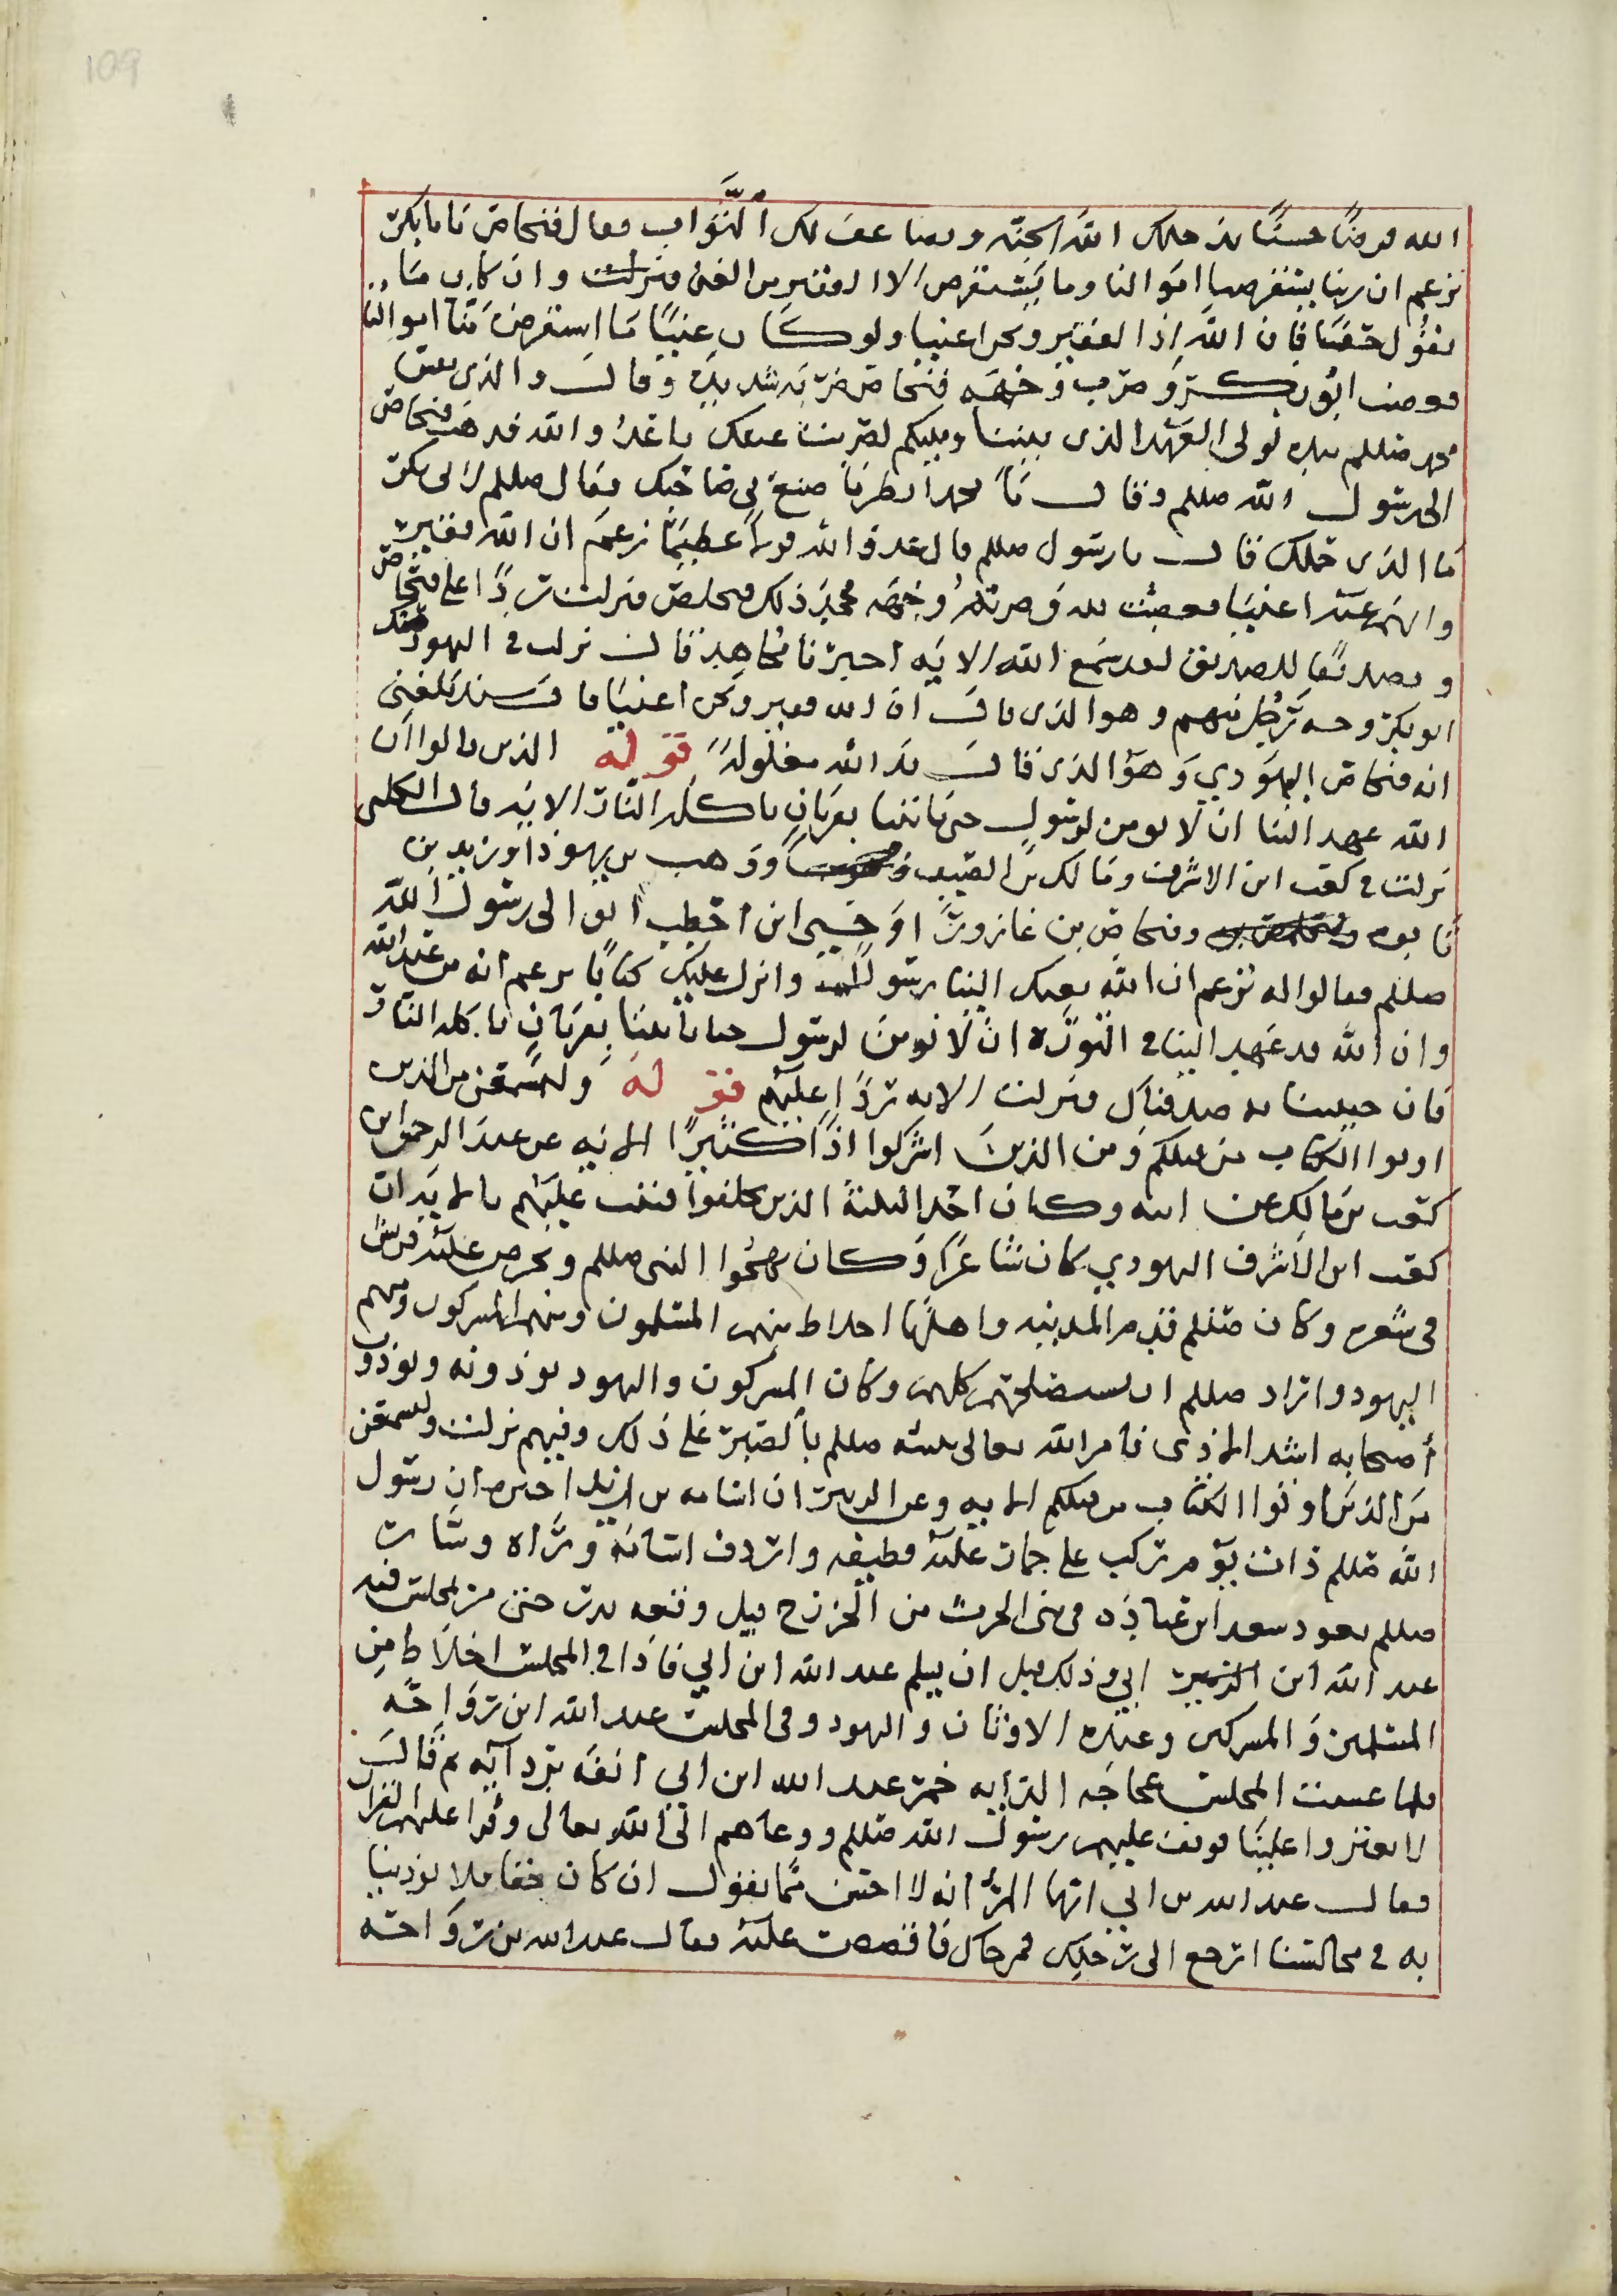 109
الله قرضًا حسنًا يدخلك الله الجنه ويضاعف لك الثواب فقال فنحاص يا با بكر
تزعم ان ربنا يستقرضنا اموالنا وما يستقرض الا الفقير من الغنى فنزلت وان كان ما
تقول حقا فان الله اذا لفقير ونحن اغنيا ولو كان غنيًا ما استقرض منا اموالنا
فغضب ابو بكر وضرب وجهه فنحاص ضربة شديده وقال والذى نفس
محمد صللم بيده لولى العهد الذى بيننا وبينكم لضربت عنقك يا عدو الله فذهب فنحاص
الى رسول الله صللم وقال يا محمد انظر ما صنع بى صاحبك فقال صللم لابى بكر
ما الذى حملك قال يا رسول صللم قال عدو الله قولا عظيمًا زعم ان الله فقير
وانهم عنه اغنيا فغضبت لله وضربت وجهه فجحد ذلك فنحاص فنزلت ردًا على فنحاص
وتصديقًا للصديق لقد سمع الله الايه اخبرنا مجاهد قال نزلت فى اليهود صك
ابو بكر وجه رجل منهم وهو الذى قال ان الله فقير ونحن اغنيا قال سند بلغنى
انه فنحاص اليهودي وهو الذى قال يد الله مغلوله قوله الذين قالوا ان
الله عهد الينا ان لا نومن لرسول حتى ياتينا بقربان تاكله النار الايه قال الكلبى
نزلت فى كعب ابن الاشرف ومالك بن الصيف ووهب بن يهوذا وزيد بن
تابوه وفنحاص بن عازورا وحيي ابن اخطب اتو الى رسول الله
صللم فقالوا له تزعم ان الله بعثك الينا رسولا وانزل عليك كتابًا تزعم انه من عند الله
وان الله قد عهد الينا فى التورة ان لا نومن لرسول حتا ياتينا بقربان تاكله النار
فان جيتنا به صدقناك فنزلت الايه ردًا عليهم قوله ولتسمعن من الذين
اوتوا الكتاب من قبلكم ومن الذين اشركوا اذًا كثيرًا الايه عن عبد الرحمن ابن
كعب بن مالك عن ابيه وكان احد الثلثة الذين تخلفوا فتيب عليهم بالمدينه ان
كعب ابن الاشرف اليهودي كان شاعرًا وكان يهجوا النبى صللم ويحرض عليه قريش
فى شعره وكان صللم قدم المدينه واهلها اخلاط منهم المسلمون ومنهم المشركون ومنهم
اليهود واراد صللم ان يستصلحهم كلهم وكان المشركون واليهود يوذونه ويوذون
أصحابه اشد الاذى فامر الله تعالى نبيه صللم بالصبر على ذلك وفيهم نزلت ولتسمعن
من الذين اوتوا الكتاب من قبلكم الايه وعن الزهرى ان اسامه بن زيد اخبره ان رسول
الله صللم ذات يوم ركب على حمار عليه قطيفه واردف اسامه وراه وسار
صللم يعود سعد ابن عباده فى بنى الحرث من الخزرج قبل وقعه بدر حتى مر بمجلس فيه
عبد الله ابن ابي وذلك قبل ان يسلم عبد الله ابن ابي فاذا فى المجلس اخلاط من
المسلمين والمشركين وعبده الاوثان واليهود وفى المجلس عبد الله ابن رواحه
فلما غشيت المجلس عجاجه الدابه خمر عبد الله ابن ابى انفه بردايه ثم قال
لا تغبروا علينا فوقف عليهم رسول الله صللم ودعاهم الى الله تعالى وقرا عليهم القران
فقال عبد الله بن ابي ايها المرؤ انه لا احسن مما تقول ان كان حقا فلا توذينا
به فى مجالسنا ارجع الى رحلك فمن جاك فاقصص عليه فقال عبد الله بن رواحه